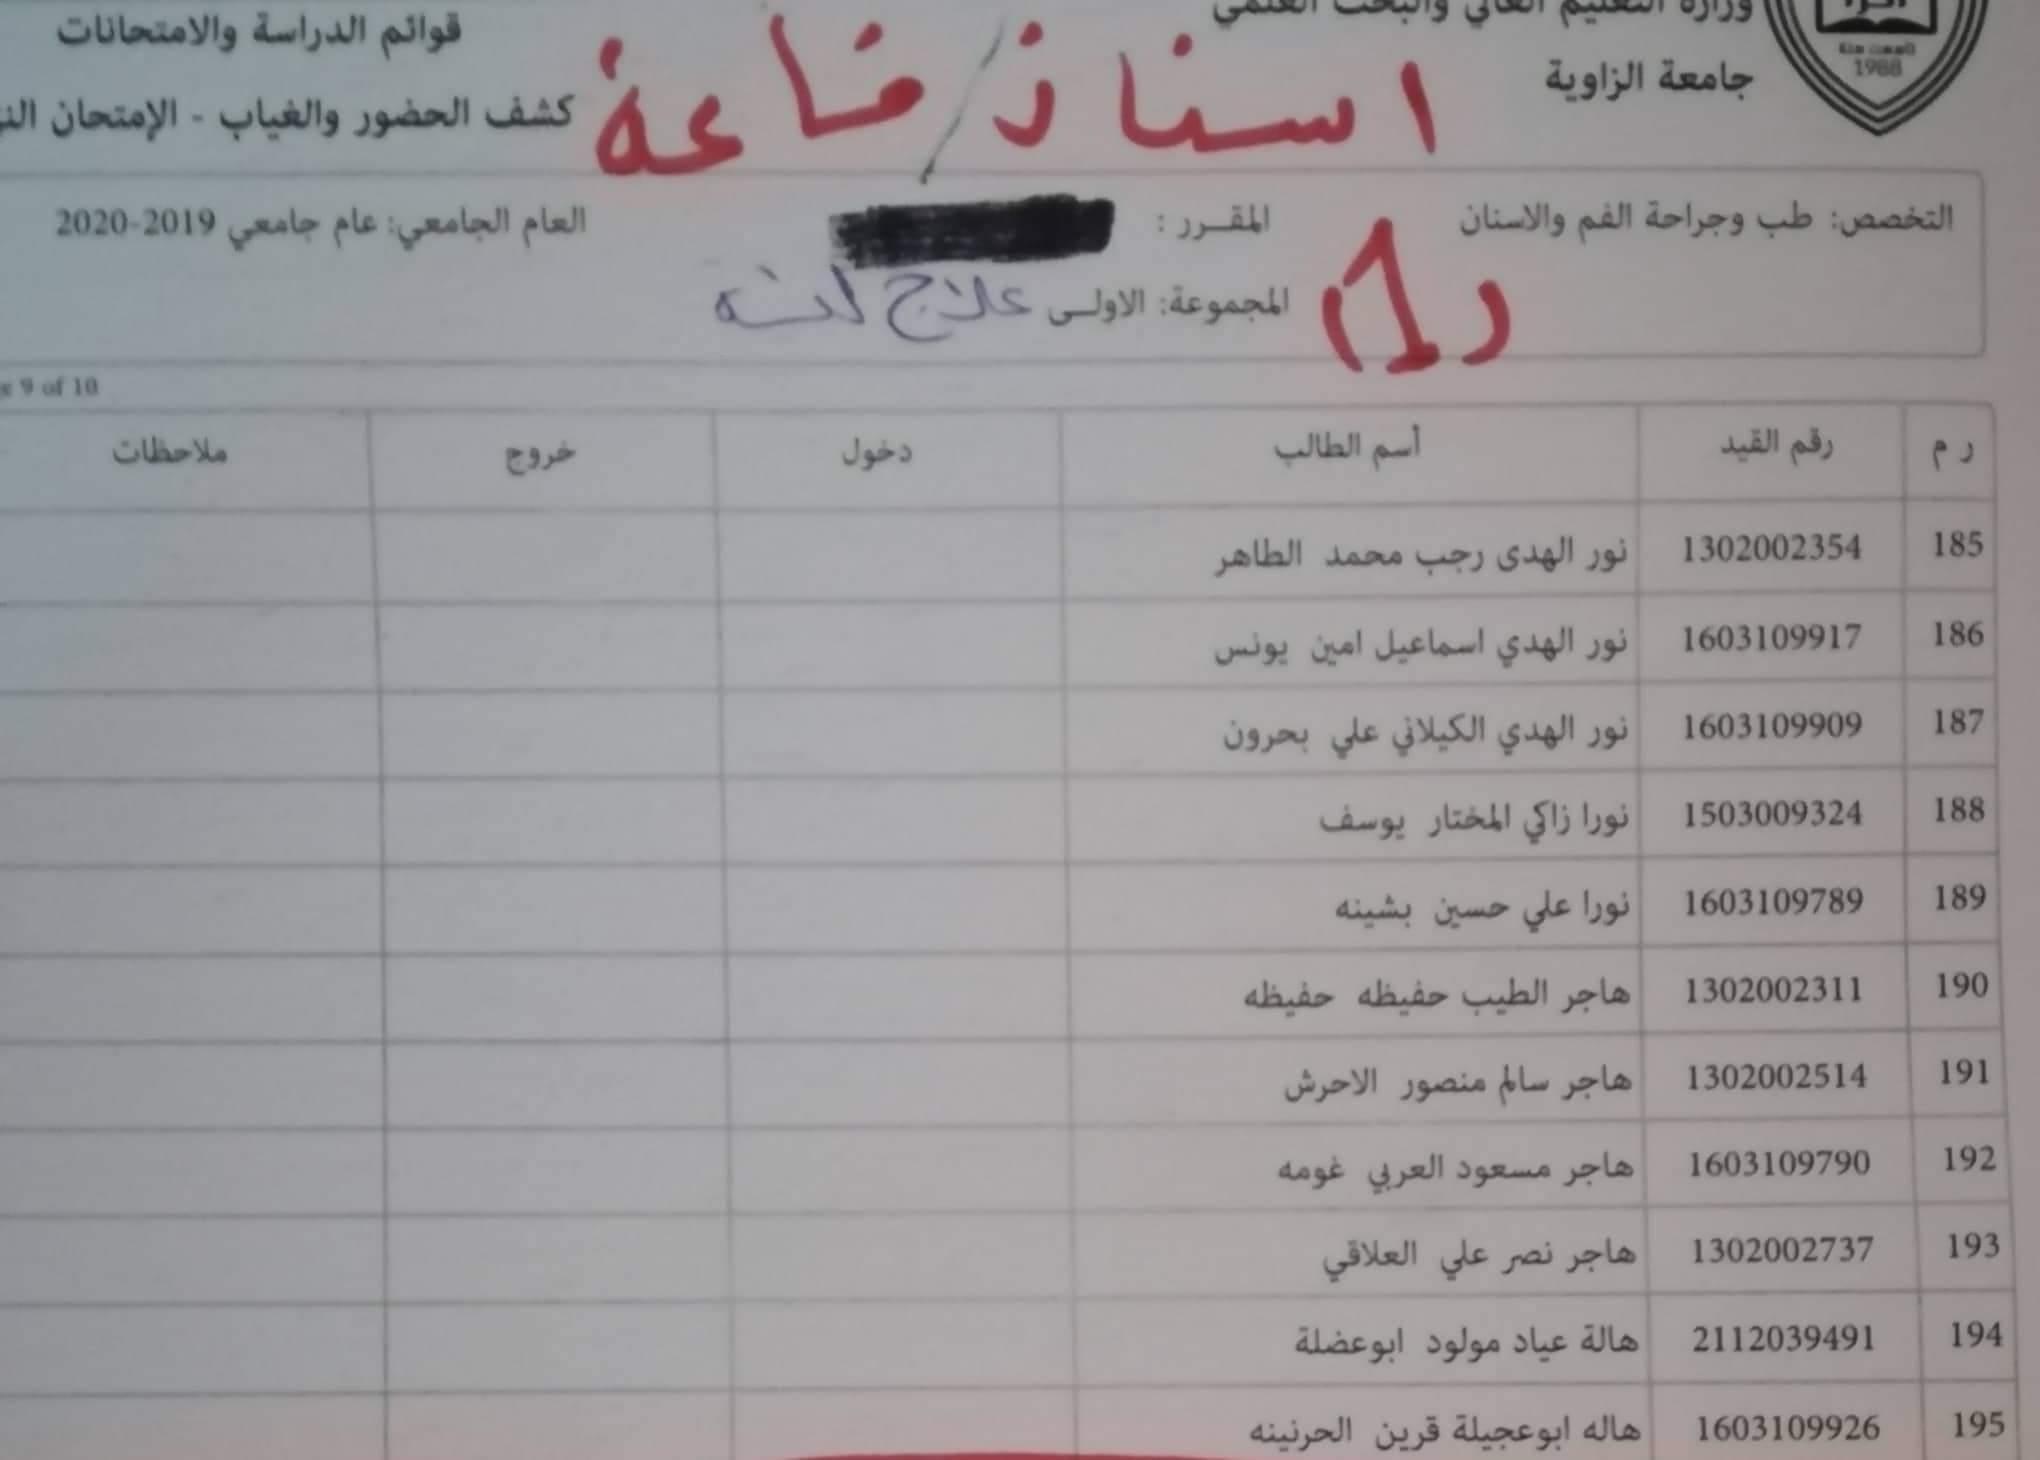 وزارة التعليم العالي والبحث العلمي
جامعة الزاوية
1988
قوائم الدراسة والامتحانات
كشف الحضور والغياب - الإمتحان
استاذ / قاعة
التخصص: طب وجراحة الفم والاسنان
المقـرر :
العام الجامعي: عام جامعي 2019-2020
المجموعة: الاولـى علاج لثة
9 of 10
ر م رقم القيد أسم الطالب دخول خروج ملاحظات
185 1302002354 نور الهدى رجب محمد الطاهر
186 1603109917 نور الهدي اسماعيل امين يونس
187 1603109909 نور الهدي الكيلاني علي بحرون
188 1503009324 نورا زاكي المختار يوسف
189 1603109789 نورا علي حسين بشينه
190 1302002311 هاجر الطيب حفيظه حفيظه
191 1302002514 هاجر سالم منصور الاحرش
192 1603109790 هاجر مسعود العربي غومه
193 1302002737 هاجر نصر علي العلاقي
194 2112039491 هالة عياد مولود ابوعضلة
195 1603109926 هاله ابوعجيلة قرين الحرنينه